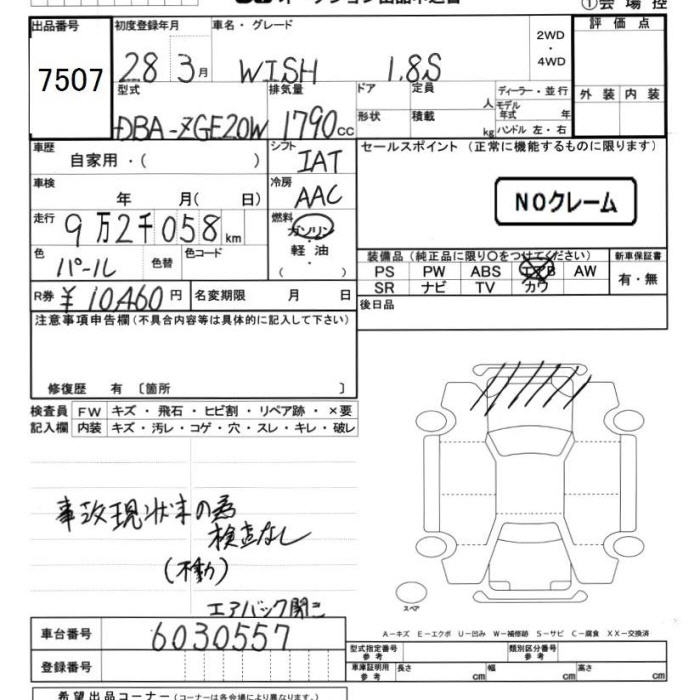 ①会場控
出品番号 初度登録年月 車名・グレード 2WD ・ 4WD 評価点
7507 28 3月 WISH 1.8S
型式 排気量 ドア 定員 人 ディーラー・並行 外装 内装
DBA-ZGE20W 1790cc 形状 積載 kg モデル年式 年 ハンドル 左・右
車歴 自家用・( ) シフト IAT セールスポイント (正常に機能するものに限ります)
車検 年 月( 日) 冷房 AAC NOクレーム
走行 9万2千058km 燃料 ガソリン・軽油・( )
色 パール 色替 色コード 装備品(純正品に限り○をつけてください) 新車保証書
PS PW ABS エアB AW 有・無
SR ナビ TV カワ
R券 ¥10,460円 名変期限 月 日 後日品
注意事項申告欄(不具合内容等は具体的に記入して下さい)
修復歴 有〔箇所 〕
検査員 FW キズ・飛石・ヒビ割・リペア跡・×要
記入欄 内装 キズ・汚レ・コゲ・穴・スレ・キレ・破レ
事故現状車の為
検査なし
(不動)
エアバック開ニ
スペア
A-キズ E-エクボ U-凹み W-補修跡 S-サビ C-腐食 XX-交換済
車台番号 6030557 型式指定番号 参考 類別区分番号 参考
登録番号 車庫証明用 参考 長さ cm 幅 cm 高さ cm
希望出品コーナー(コーナーは各会場により異なります。)